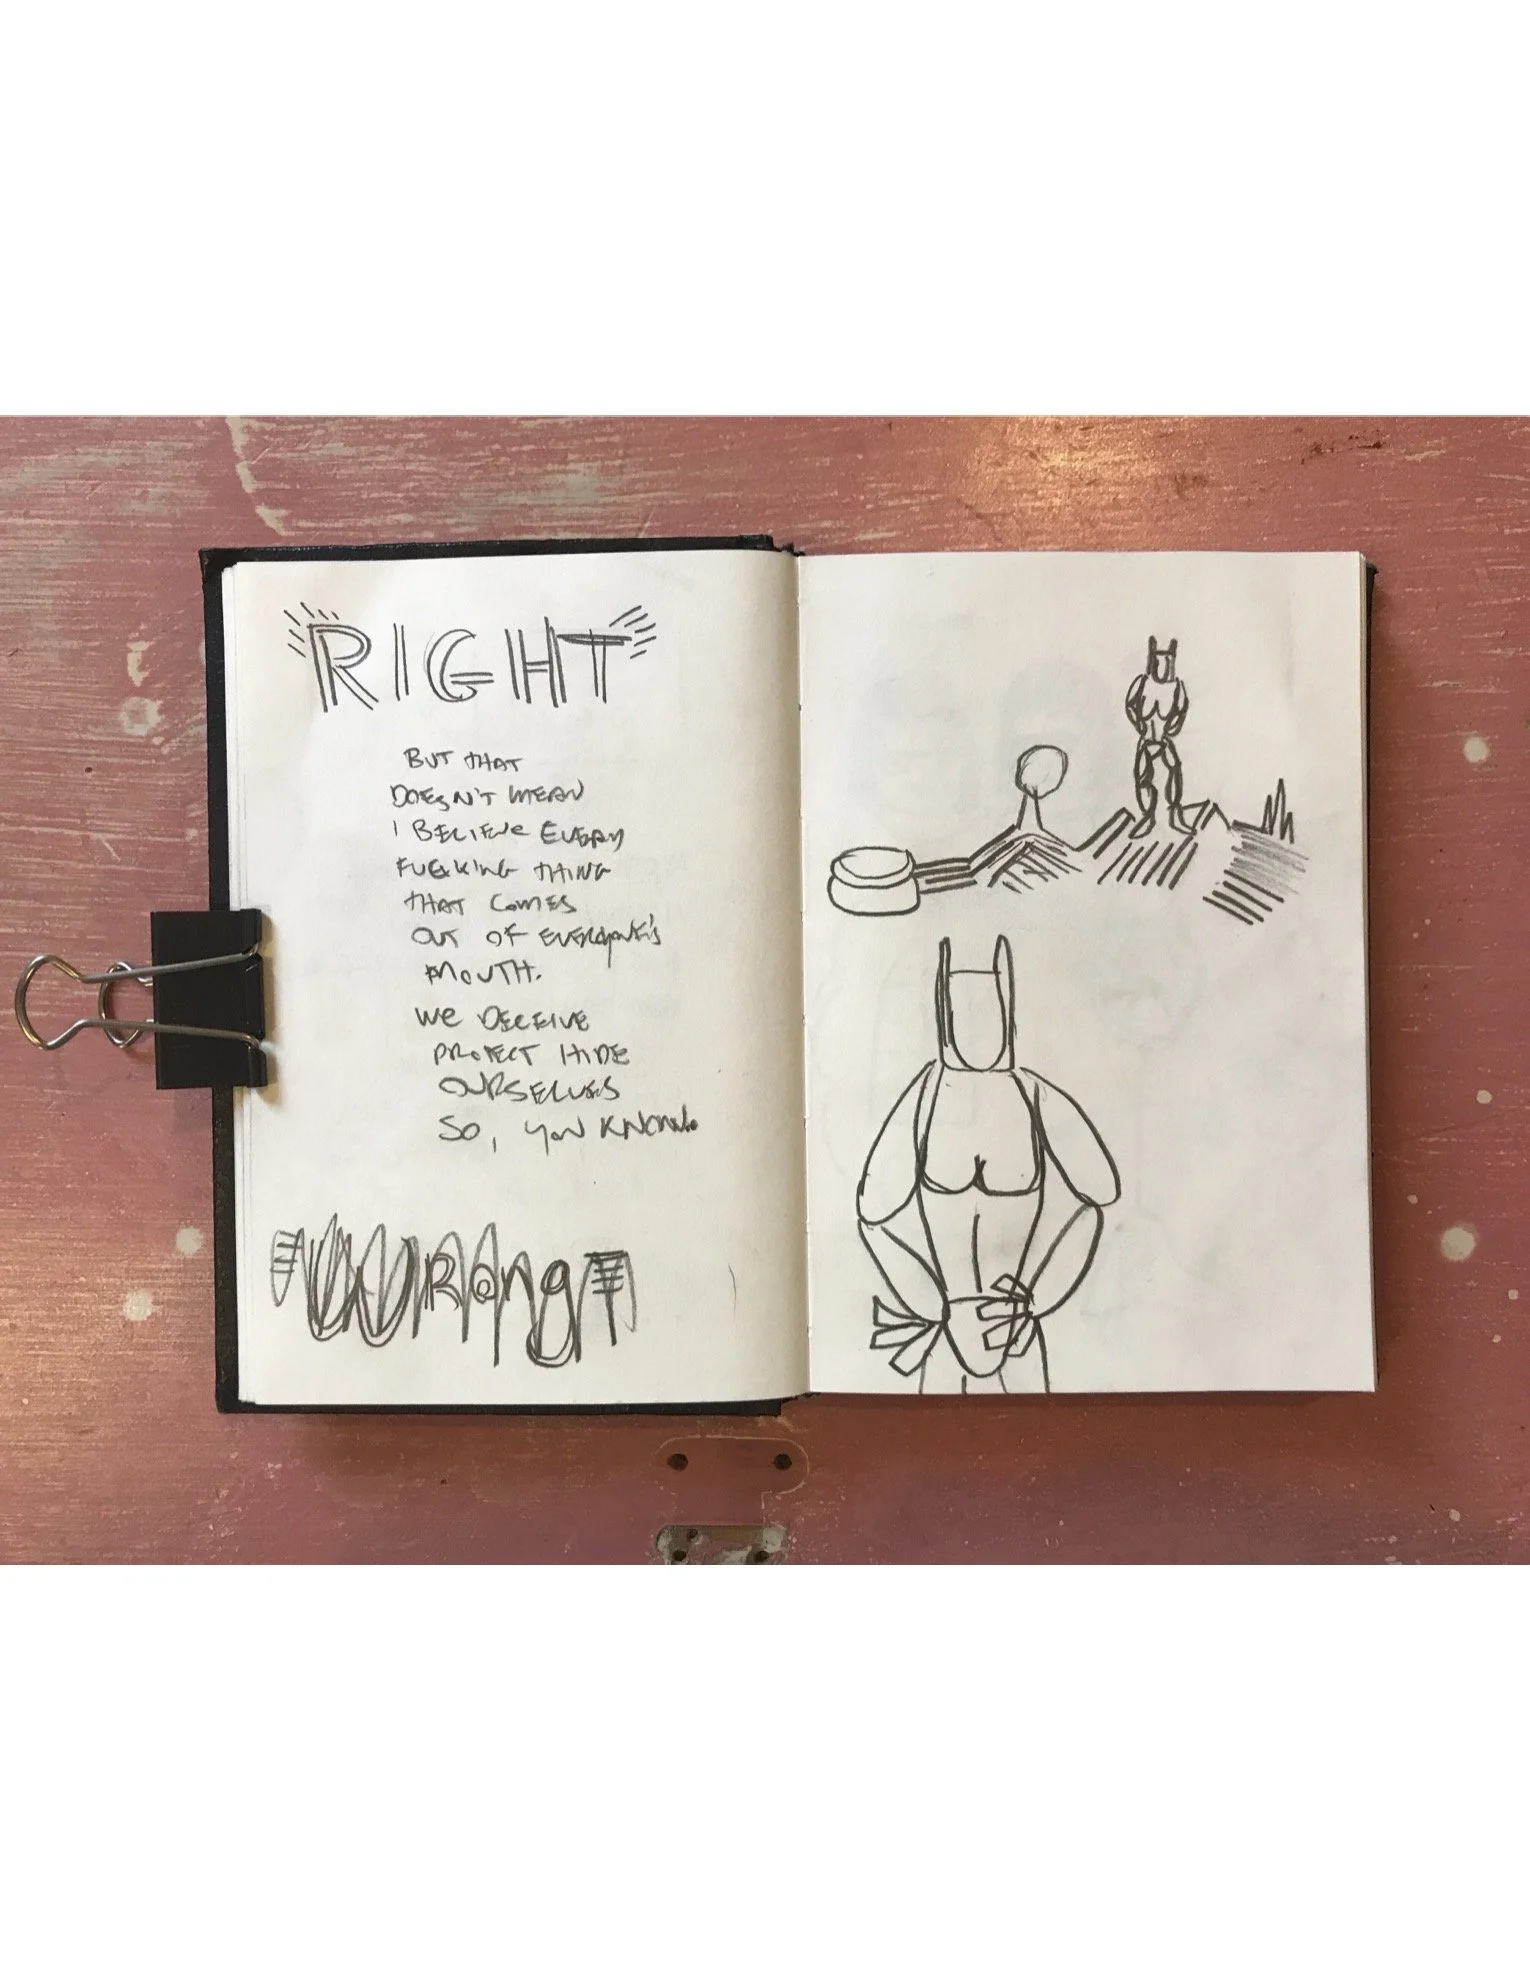 RIGHT
BUT THAT
DOESN'T MEAN
I BELIEVE EVERY
FUCKING THING
THAT COMES
OUT OF EVERYONE'S
MOUTH.
WE DECEIVE
PROTECT HIDE
OURSELVES
SO, YOU KNOW.
WRong